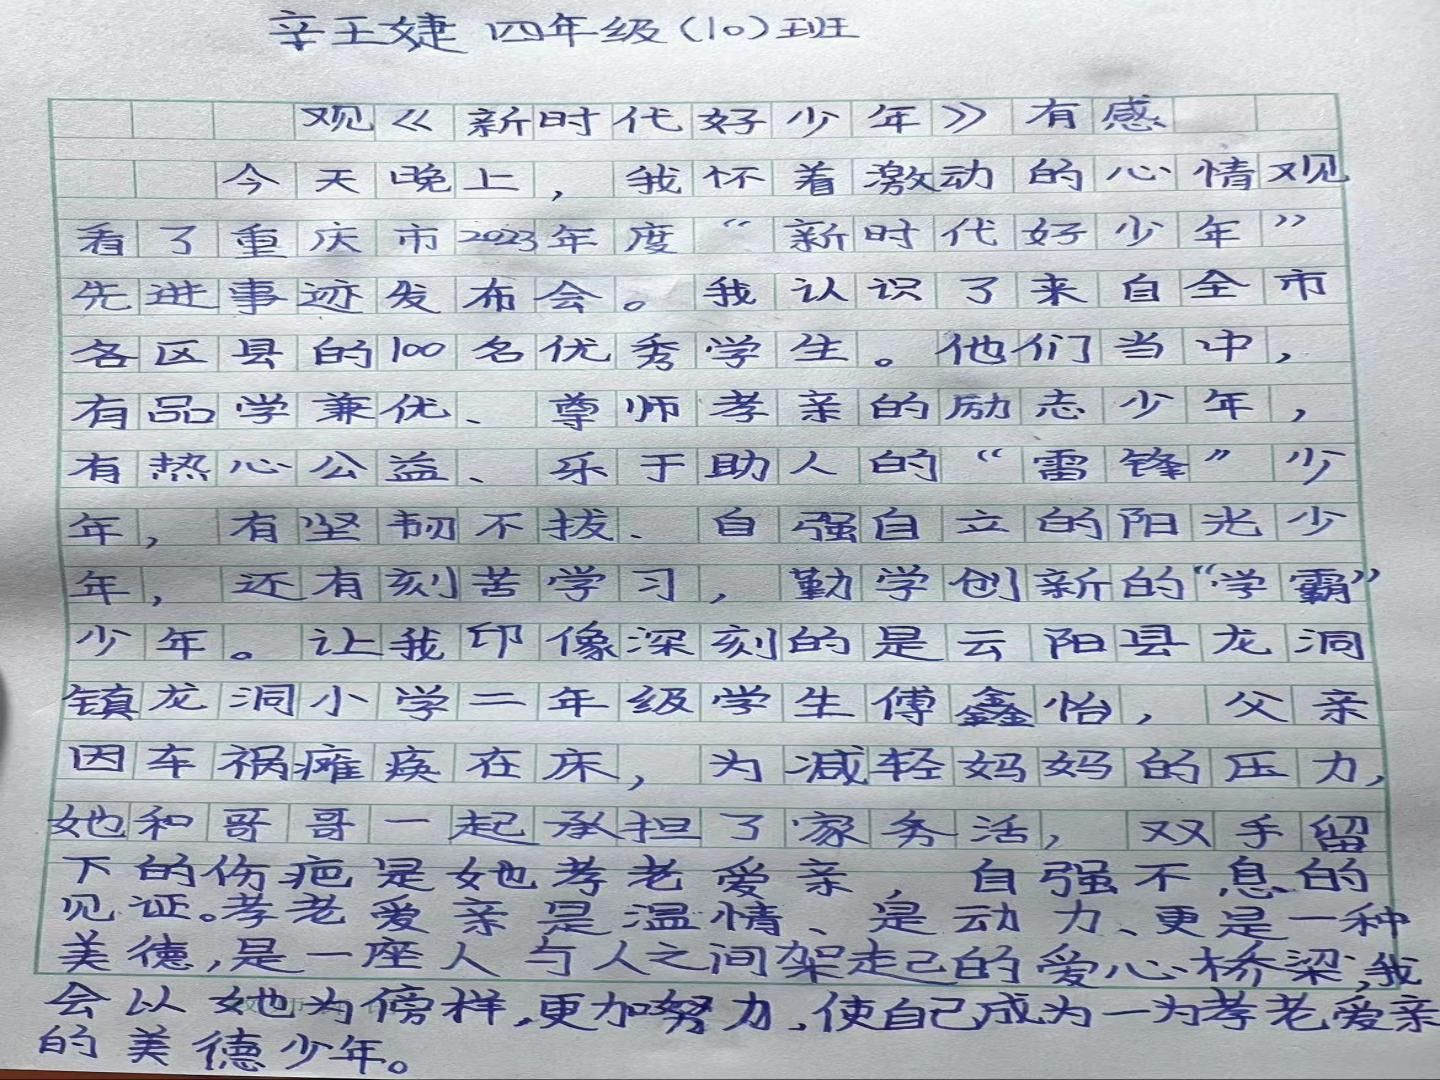 辛王婕 四年级(10)班
观《新时代好少年》有感
今天晚上，我怀着激动的心情观
看了重庆市2023年度“新时代好少年”
先进事迹发布会。我认识了来自全市
各区县的100名优秀学生。他们当中，
有品学兼优、尊师孝亲的励志少年，
有热心公益、乐于助人的“雷锋”少
年，有坚韧不拔、自强自立的阳光少
年，还有刻苦学习，勤学创新的“学霸”
少年。让我印像深刻的是云阳县龙洞
镇龙洞小学二年级学生傅鑫怡，父亲
因车祸瘫痪在床，为减轻妈妈的压力，
她和哥哥一起承担了家务活，双手留
下的伤疤是她孝老爱亲，自强不息的
见证。孝老爱亲是温情、是动力、更是一种
美德，是一座人与人之间架起的爱心桥梁，我
会以她为傍样，更加努力，使自己成为一为孝老爱亲
的美德少年。